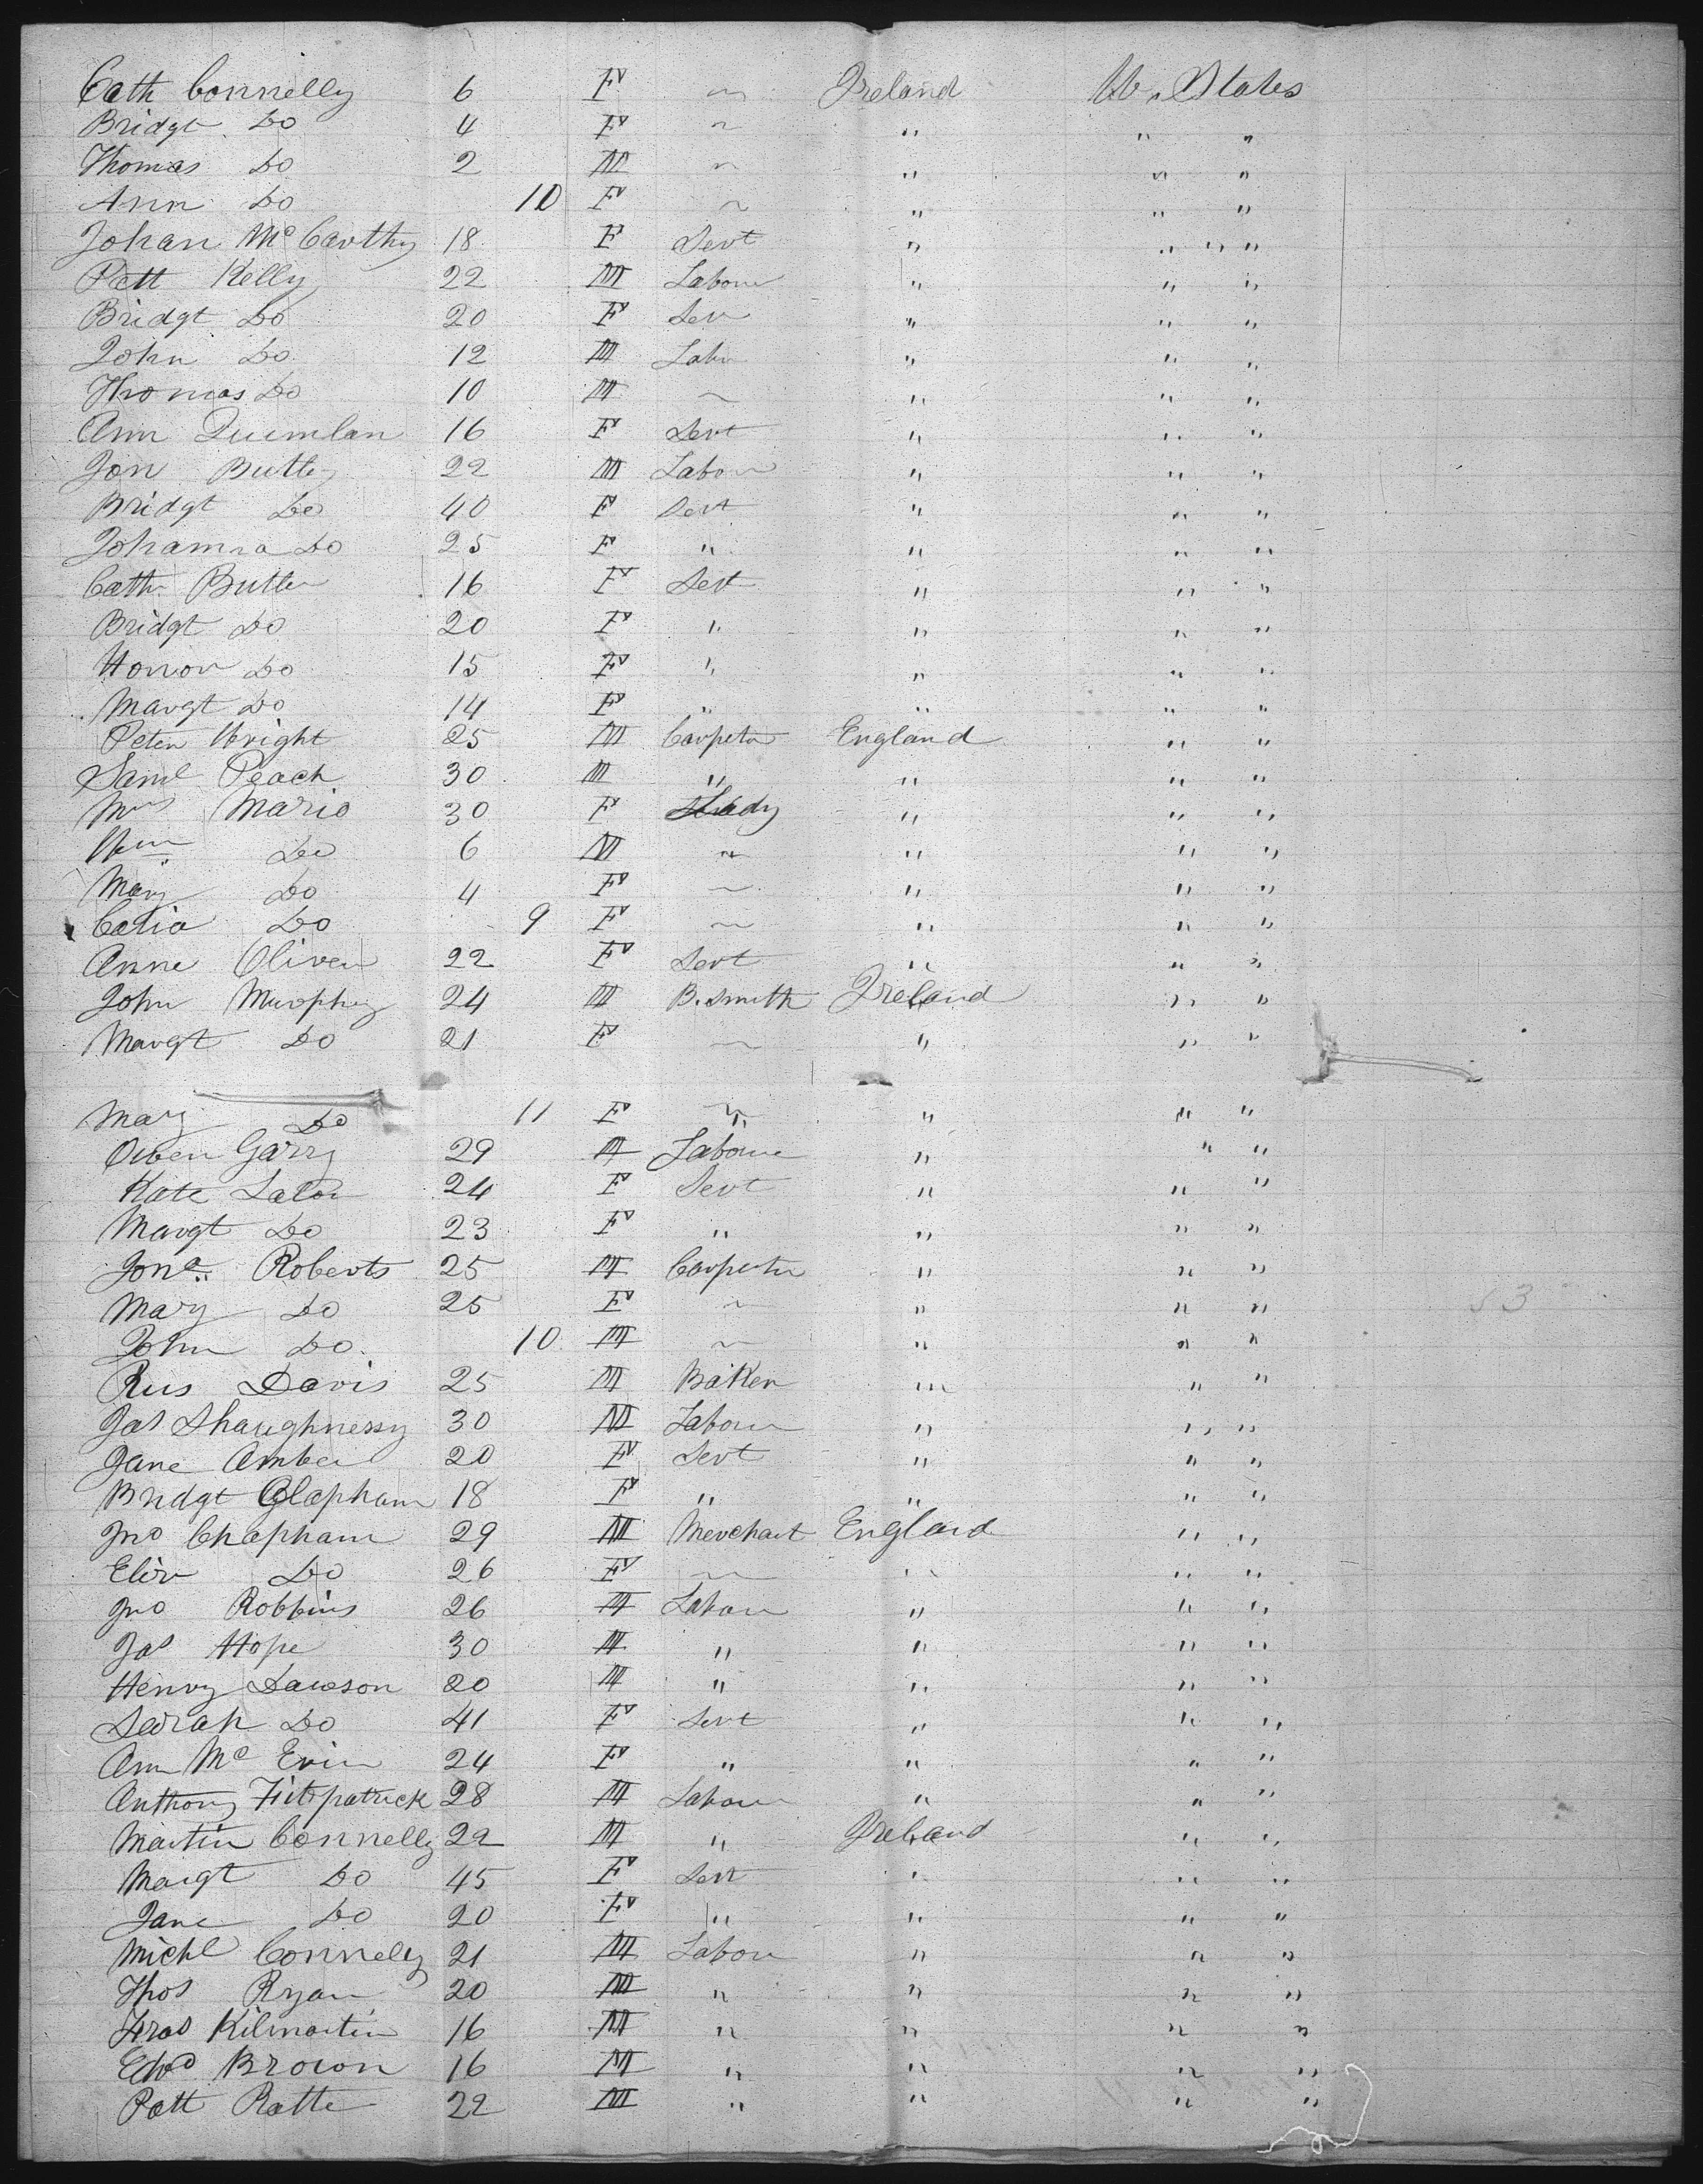 Cath Connelly 6 F ~ Ireland U. States
Bridgt Do 4 F ~ " " "
Thomas Do 2 M ~ " " "
Ann Do 10 F ~ " " "
Johan McCarthy 18 F Sevt " " " "
Patt Kelly 22 M Labour " " "
Bridgt Do 20 F Ser " " "
John Do 12 M Labr " " "
Thomas Do 10 M ~ " " "
Ann Quinnlan 16 F Sevt " " "
Jon Butler 22 M Labour " " "
Bridgt Do 40 F Sevt " " "
Johanna Do 25 F " " " "
Cath Butler 16 F Sevt " " "
Bridgt Do 20 F " " " "
Honor Do 15 F " " " "
Margt Do 14 F " " " "
Peter Wright 25 M Carpetr England " "
Saml Peach 30 M " " " "
Mrs Mario 30 F Lady " " "
Wm Do 6 M ~ " " "
Mary Do 4 F ~ " " "
Do 9 F ~ " " "
Anne Oliver 22 F Sevt " " "
John Murphy 24 M B.smith Ireland " "
Margt Do 21 F ~ " " "
Mary Do 11 F ~ " " "
Owen Garry 29 M Laboure " " "
Kate Lalor 24 F Sevt " " "
Margt Do 23 F " " " "
Jona Roberts 25 M Carpeter " " "
Mary Do 25 F ~ " " " 53
John Do 10 M ~ " " "
Rus Davis 25 M Baker " " "
Jas Shaughnessy 30 M Labour " " "
Jane Amber 20 F Sevt " " "
Bridgt Clapham 18 F " " " "
Jno Chapham 29 M Merchart England " "
Eliz Do 26 F ~ " " "
Jno Robbins 26 M Labour " " "
Jas Hope 30 M " " " "
Henry Dawson 20 M " " " "
Sarah Do 41 F Sevt " " "
Ann Mc Evin 24 F " " " "
Anthony Fitzpatrick 28 M Labour " " "
Martin Connelly 22 M " Ireland " "
Margt Do 45 F Sevt " " "
Jane Do 20 F " " " "
Michl Connely 21 M Labour " " "
Thos Ryan 20 M " " " "
Fras Kilmartin 16 M " " " "
Edwd Brown 16 M " " " "
Patt Ratte 22 M " " " "